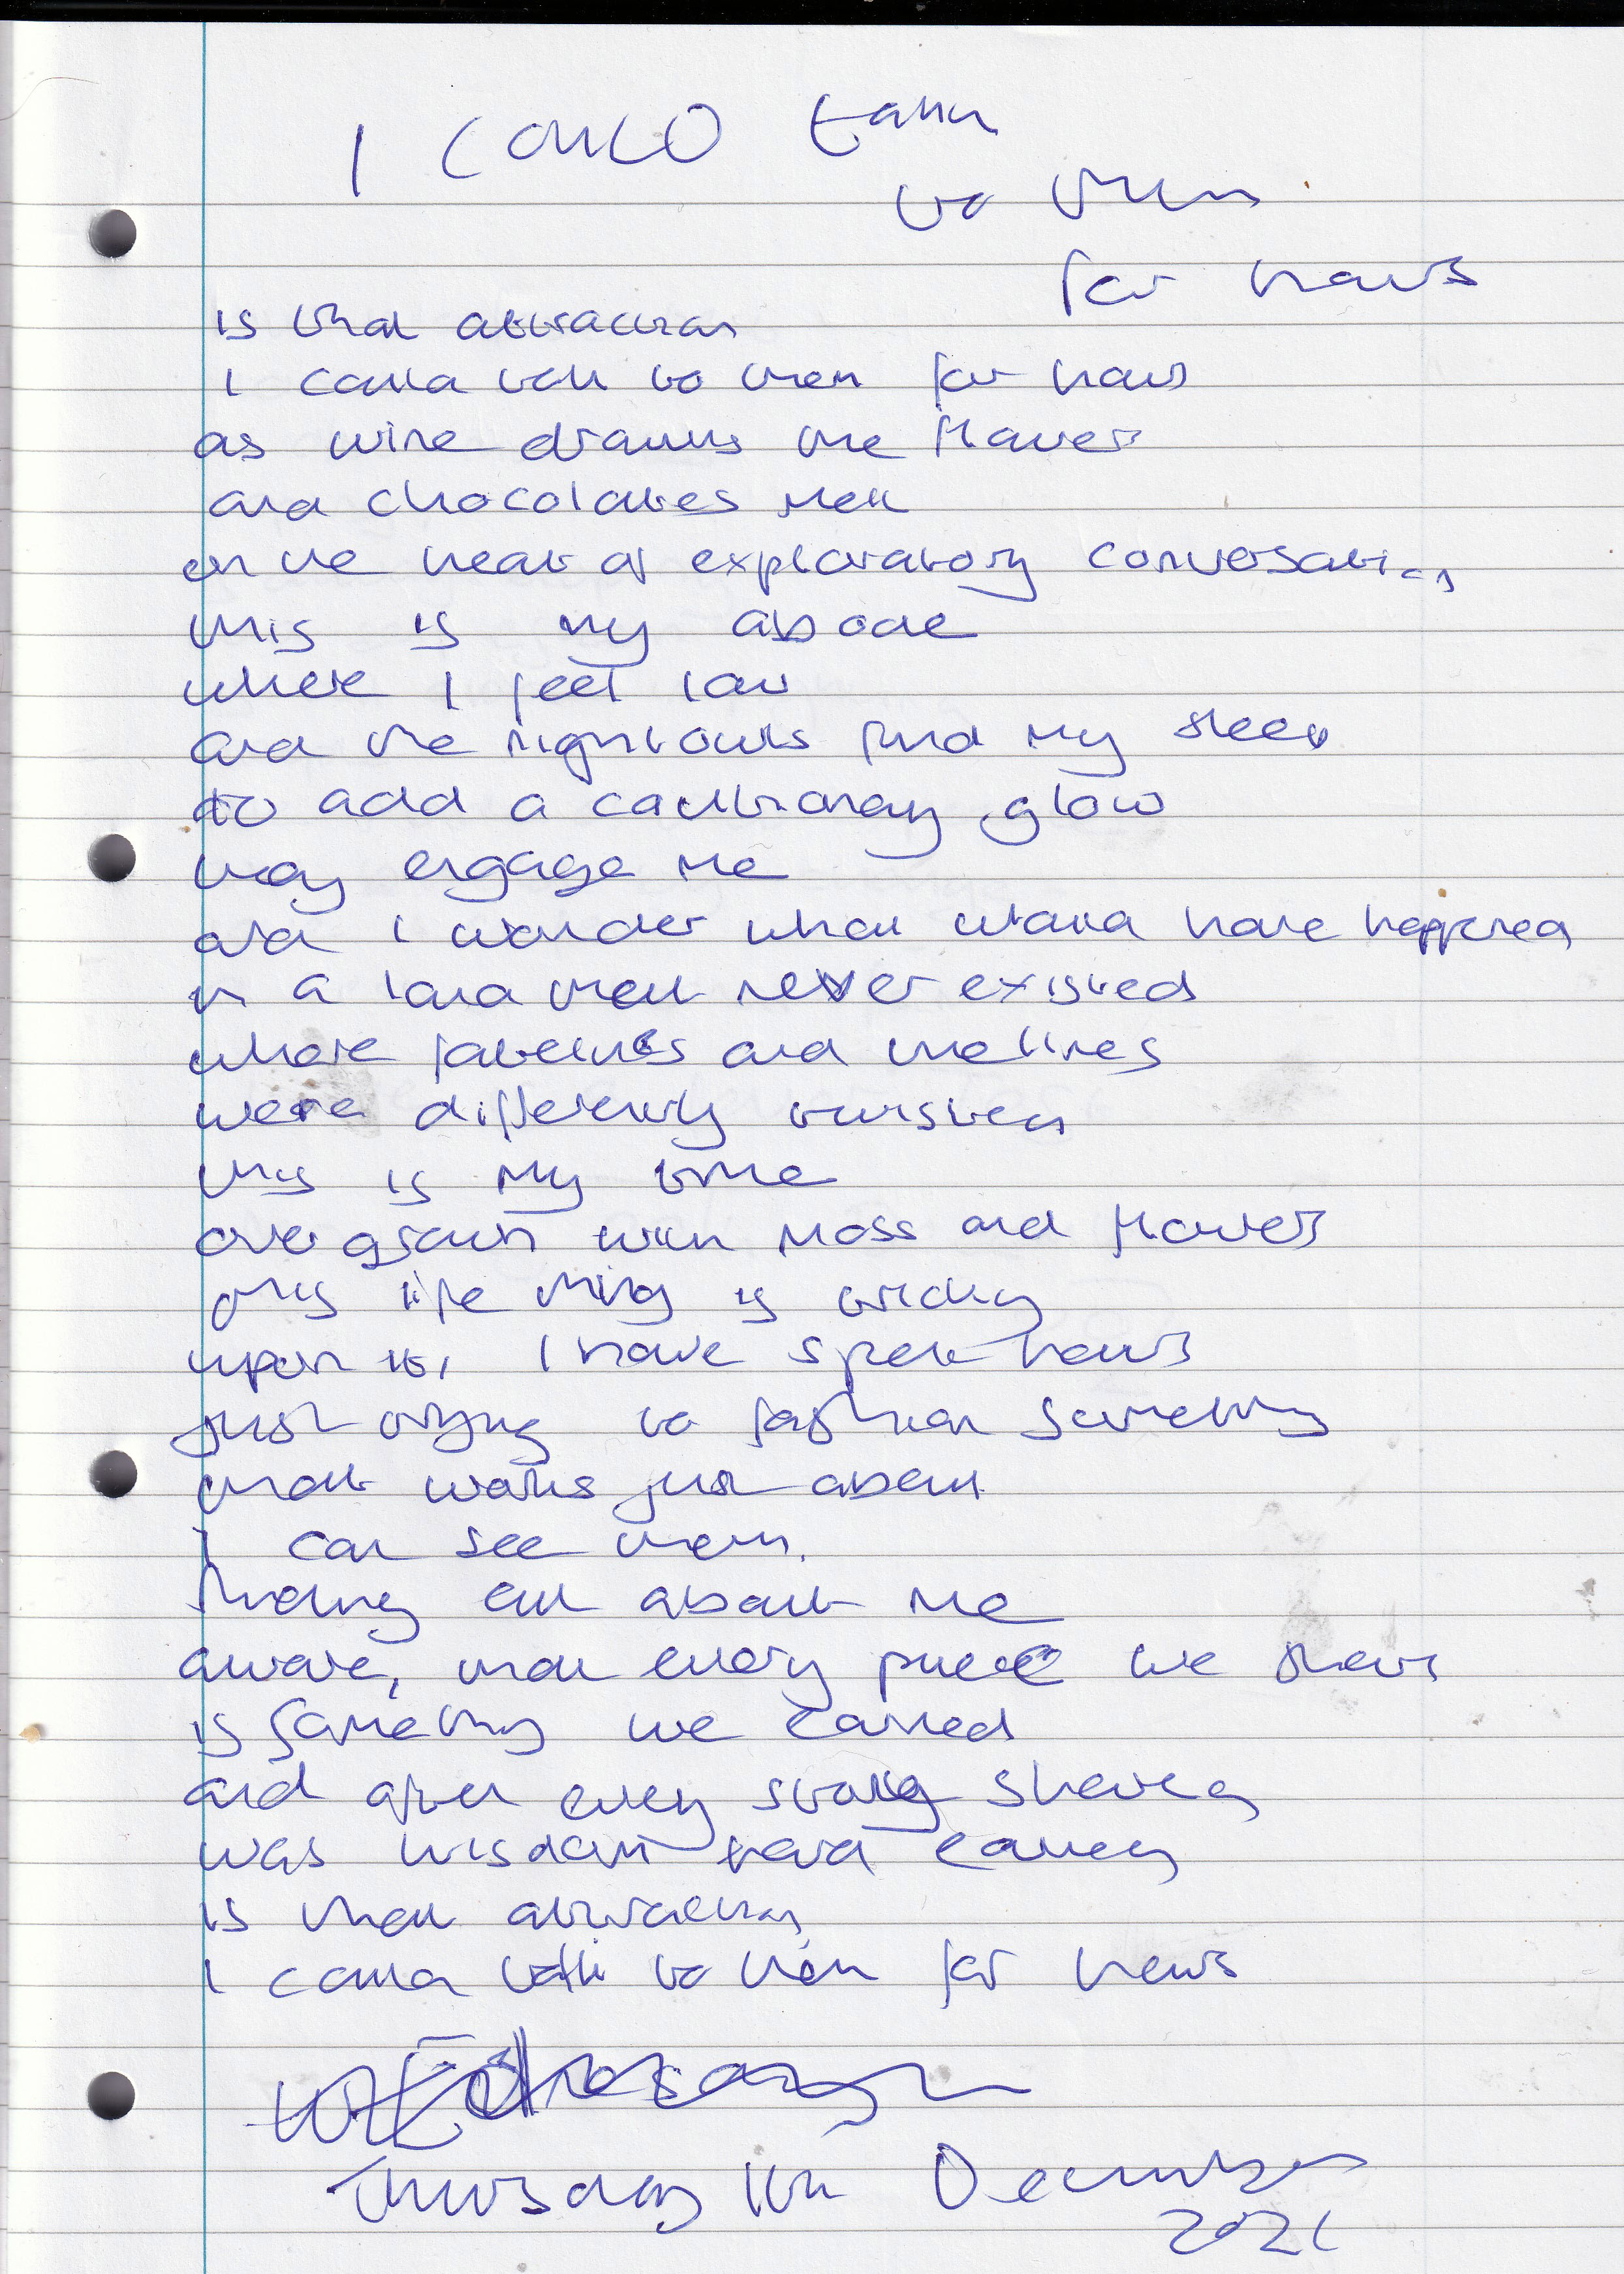 I COULD talk
to them
for hours
is that attraction
I could talk to them for hours
as wine drowns the flowers
and chocolates melt
in the heat of exploratory conversation
this is my abode
where I feel low
and the night owls find my sleep
to add a cautionary glow
they engage me
and I wonder what would have happened
in a land that never existed
where fatelines and lines
were differently twisted
this is my time
overgrown with moss and flowers
this life thing is tricky
upon it, I have spent hours
just trying to fashion something
that works just about
I can see them.
finding out about me
aware, that every piece we share
is something we earned
and after every strong
was wisdom hard
is that attraction
I could talk to them for hours
Thursday December
2021